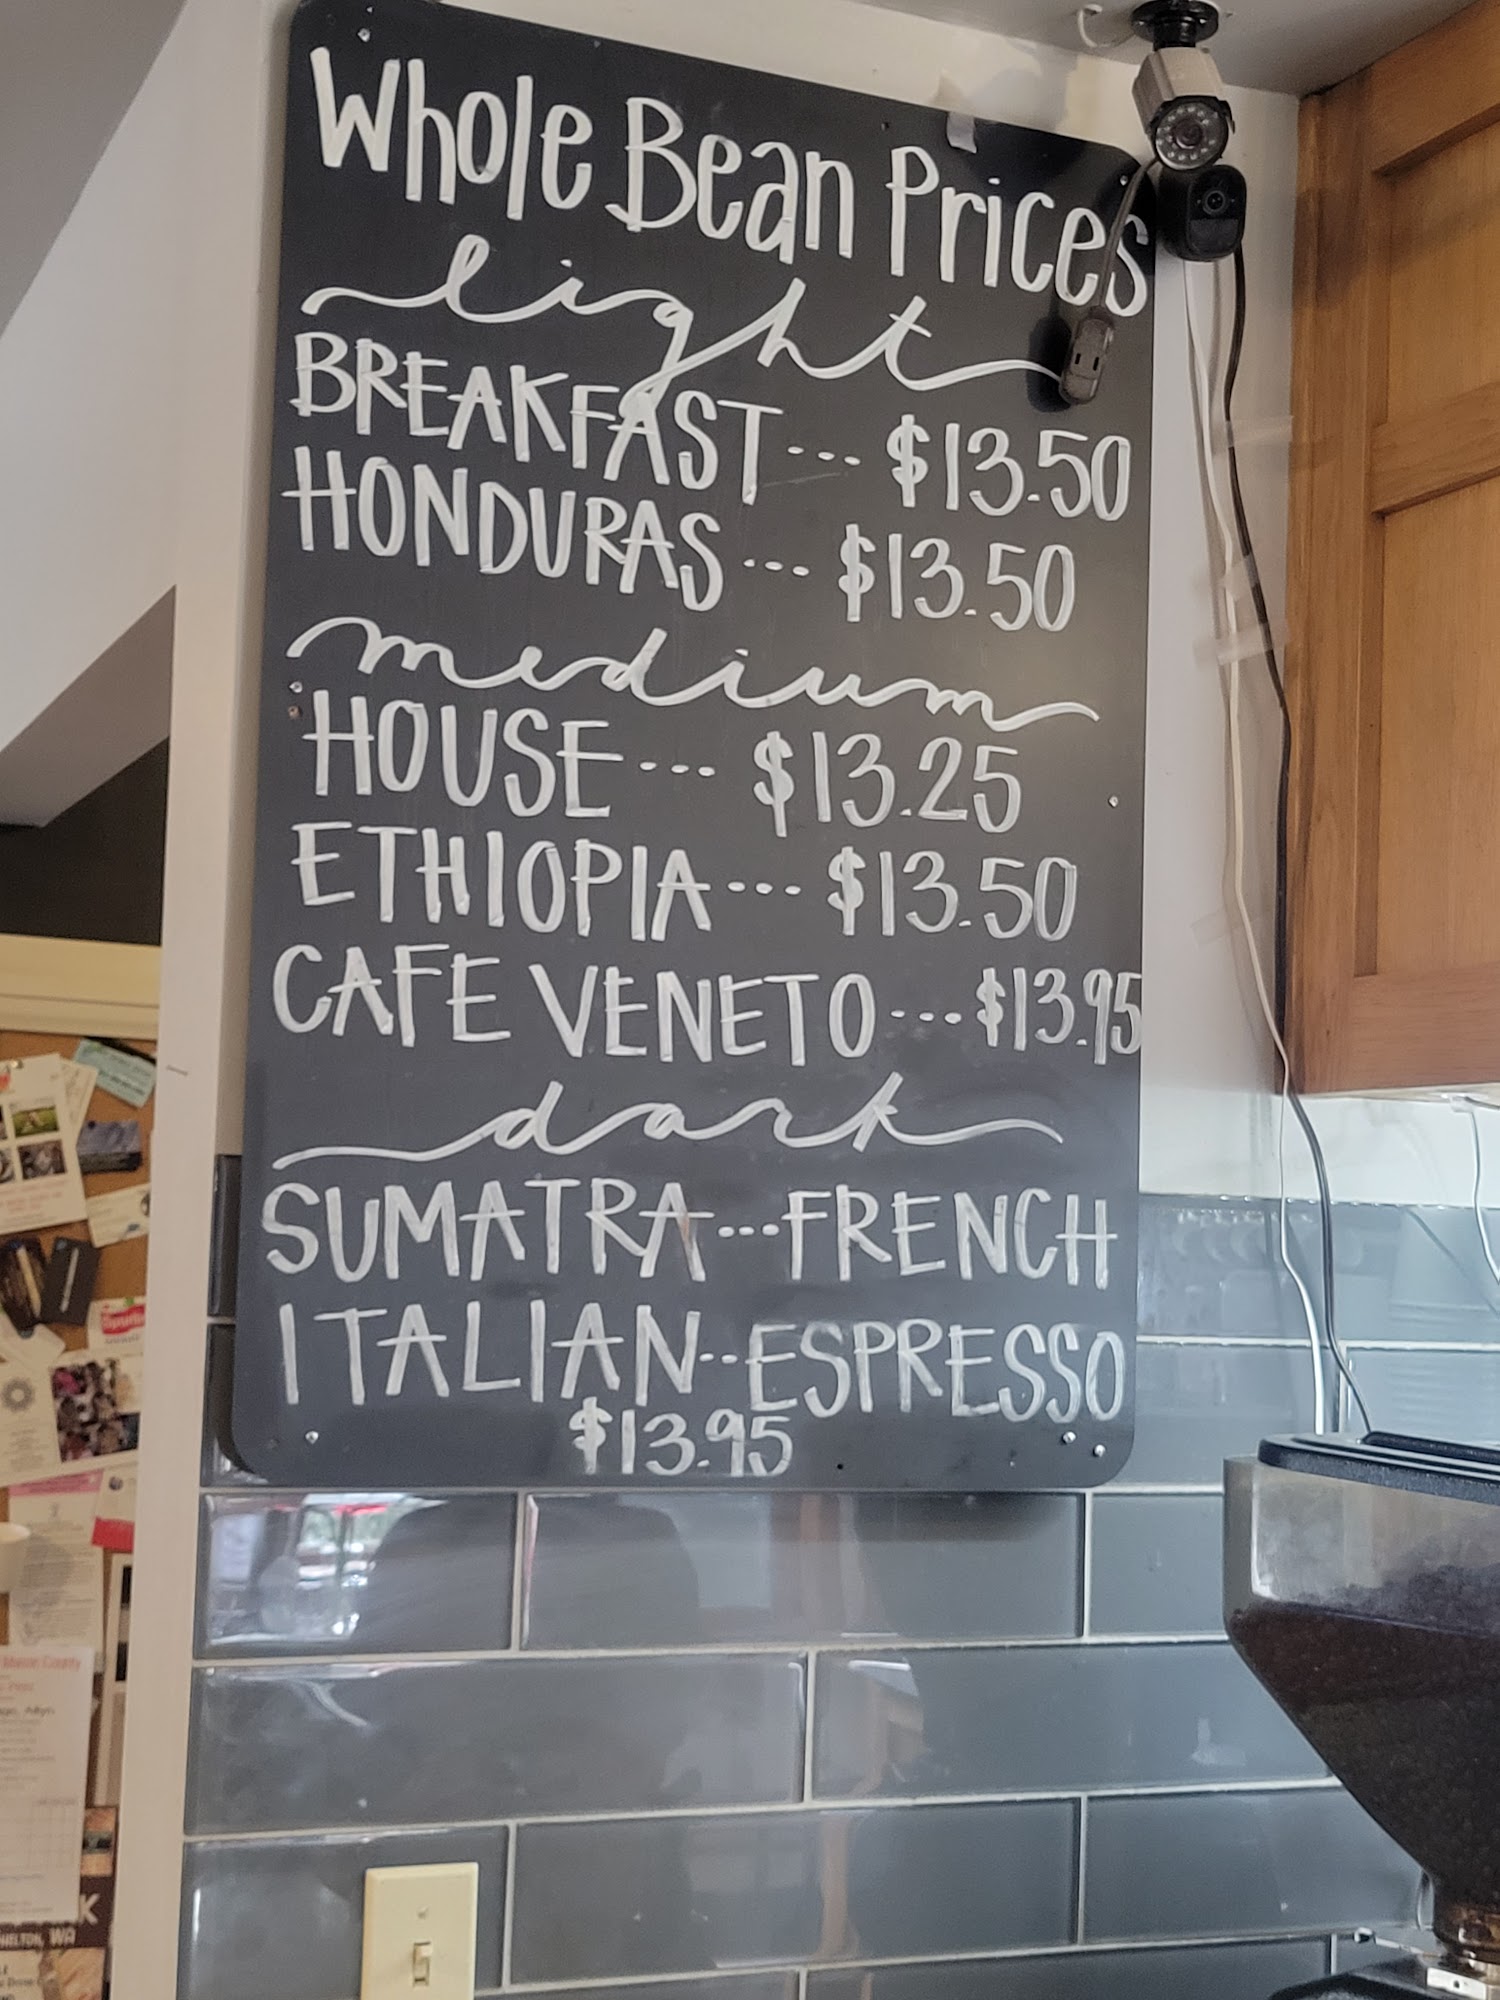 Whole Bean Prices
light
BREAKFAST--- $13.50
HONDURAS--- $13.50
medium
HOUSE--- $13.25
ETHIOPIA--- $13.50
CAFE VENETO--- $13.95
dark
SUMATRA---FRENCH
ITALIAN--ESPRESSO
$13.95
Mason County
K
HELTON, WA